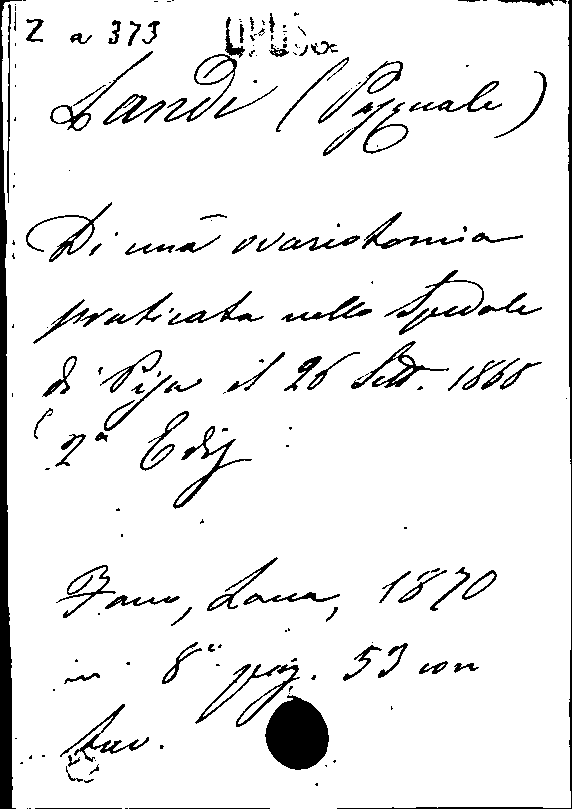 Z a 373 OPUSC.
Landi (Pasquale)
Di una ovariotomia
praticata nello Spedale
di Pisa il 26 Sett. 1868
2ª Ediz
Fano, Lana, 1870
in 8° pag. 53 con
tav.